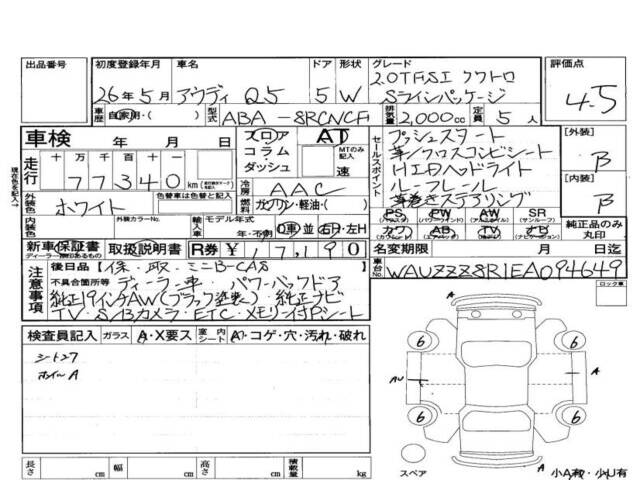 出品番号 初度登録年月 車名 ドア 形状 グレード 評価点
26年5月 アウディ Q5 5 W 2.0TFSI クワトロ
Sラインパッケージ 4.5
車歴 自家用・( ) 型式 ABA-8RCNCF 排気量 2,000cc 定員 5人
車検 年 月 日 フロア AT
コラム MTのみ記入
ダッシュ 速
走行 十万 千 百 十
77340 km
冷房 AAC
外装色 ホワイト 色替車は色替と記入 燃料 ガソリン・軽油・( )
内装色 外装カラーNo. 輸入車記入 モデル年式 年・不明 D車 並 右H・左H
セールスポイント プッシュスタート
革/クロスコンビシート
HIDヘッドライト
ルーフレール
革巻きステアリング
PS PW AW SR
カワ AB TV ナビ
純正品のみ丸印
[外装]
B
[内装]
B
新車保証書 取扱説明書 R券 ¥17,190 名変期限 月 日迄
ディーラー捺印あるもの
現在色を記入→
注意事項 後日品 (保・取・ミニB-CAS
不具合箇所等 ディーラー車 パワーバックドア
純正19インチAW(ブラック塗装)・純正ナビ
TV・S/Bカメラ・ETC・メモリー付Pシート
車台No. WAUZZZ8R1EA094649
ロック車
検査員記入 ガラス A・X要ス 室内シート A・コゲ・穴・汚れ・破れ
シートスア
ホイールA
6 6
A
AU A
6 6
A
スペア 小A有・少U有
長さ cm 幅 cm 高さ cm 積載量 kg